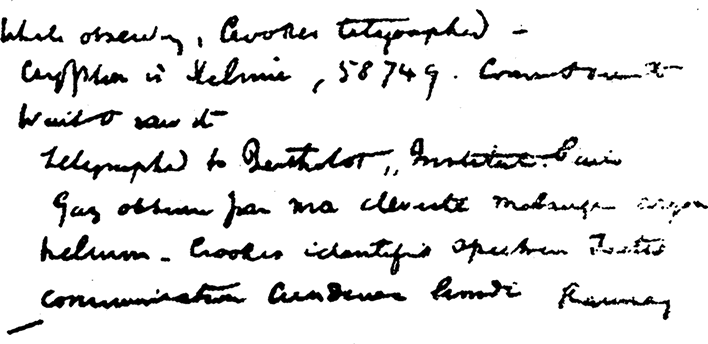 While observing, Crookes telegraphed –
Krypton is Helium, 58749. Come and see it
Went & saw it
telegraphed to Berthelot, Institut. Paris
Gaz obtenu par moi clevite melange argon
helium – Crookes identifie spectre. Faites
communication Academie lundi Ramsay